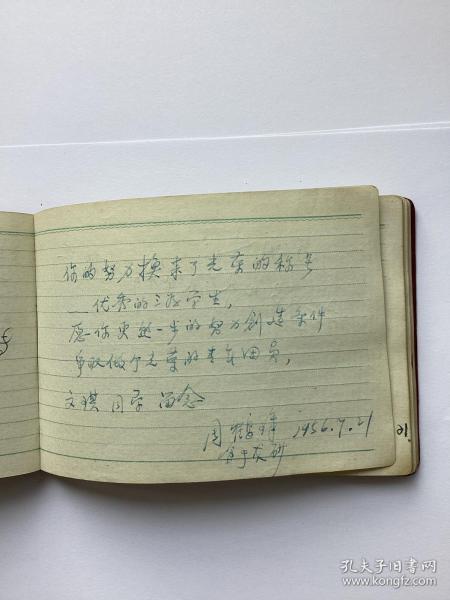 你的努力换来了光荣的称号
__优秀的三好学生,
愿你更进一步的努力创造条件
争取做个光荣的青年团员,
文琪 同学 留念
周 1956.7.21
孔夫子旧书网
www.kongfz.com